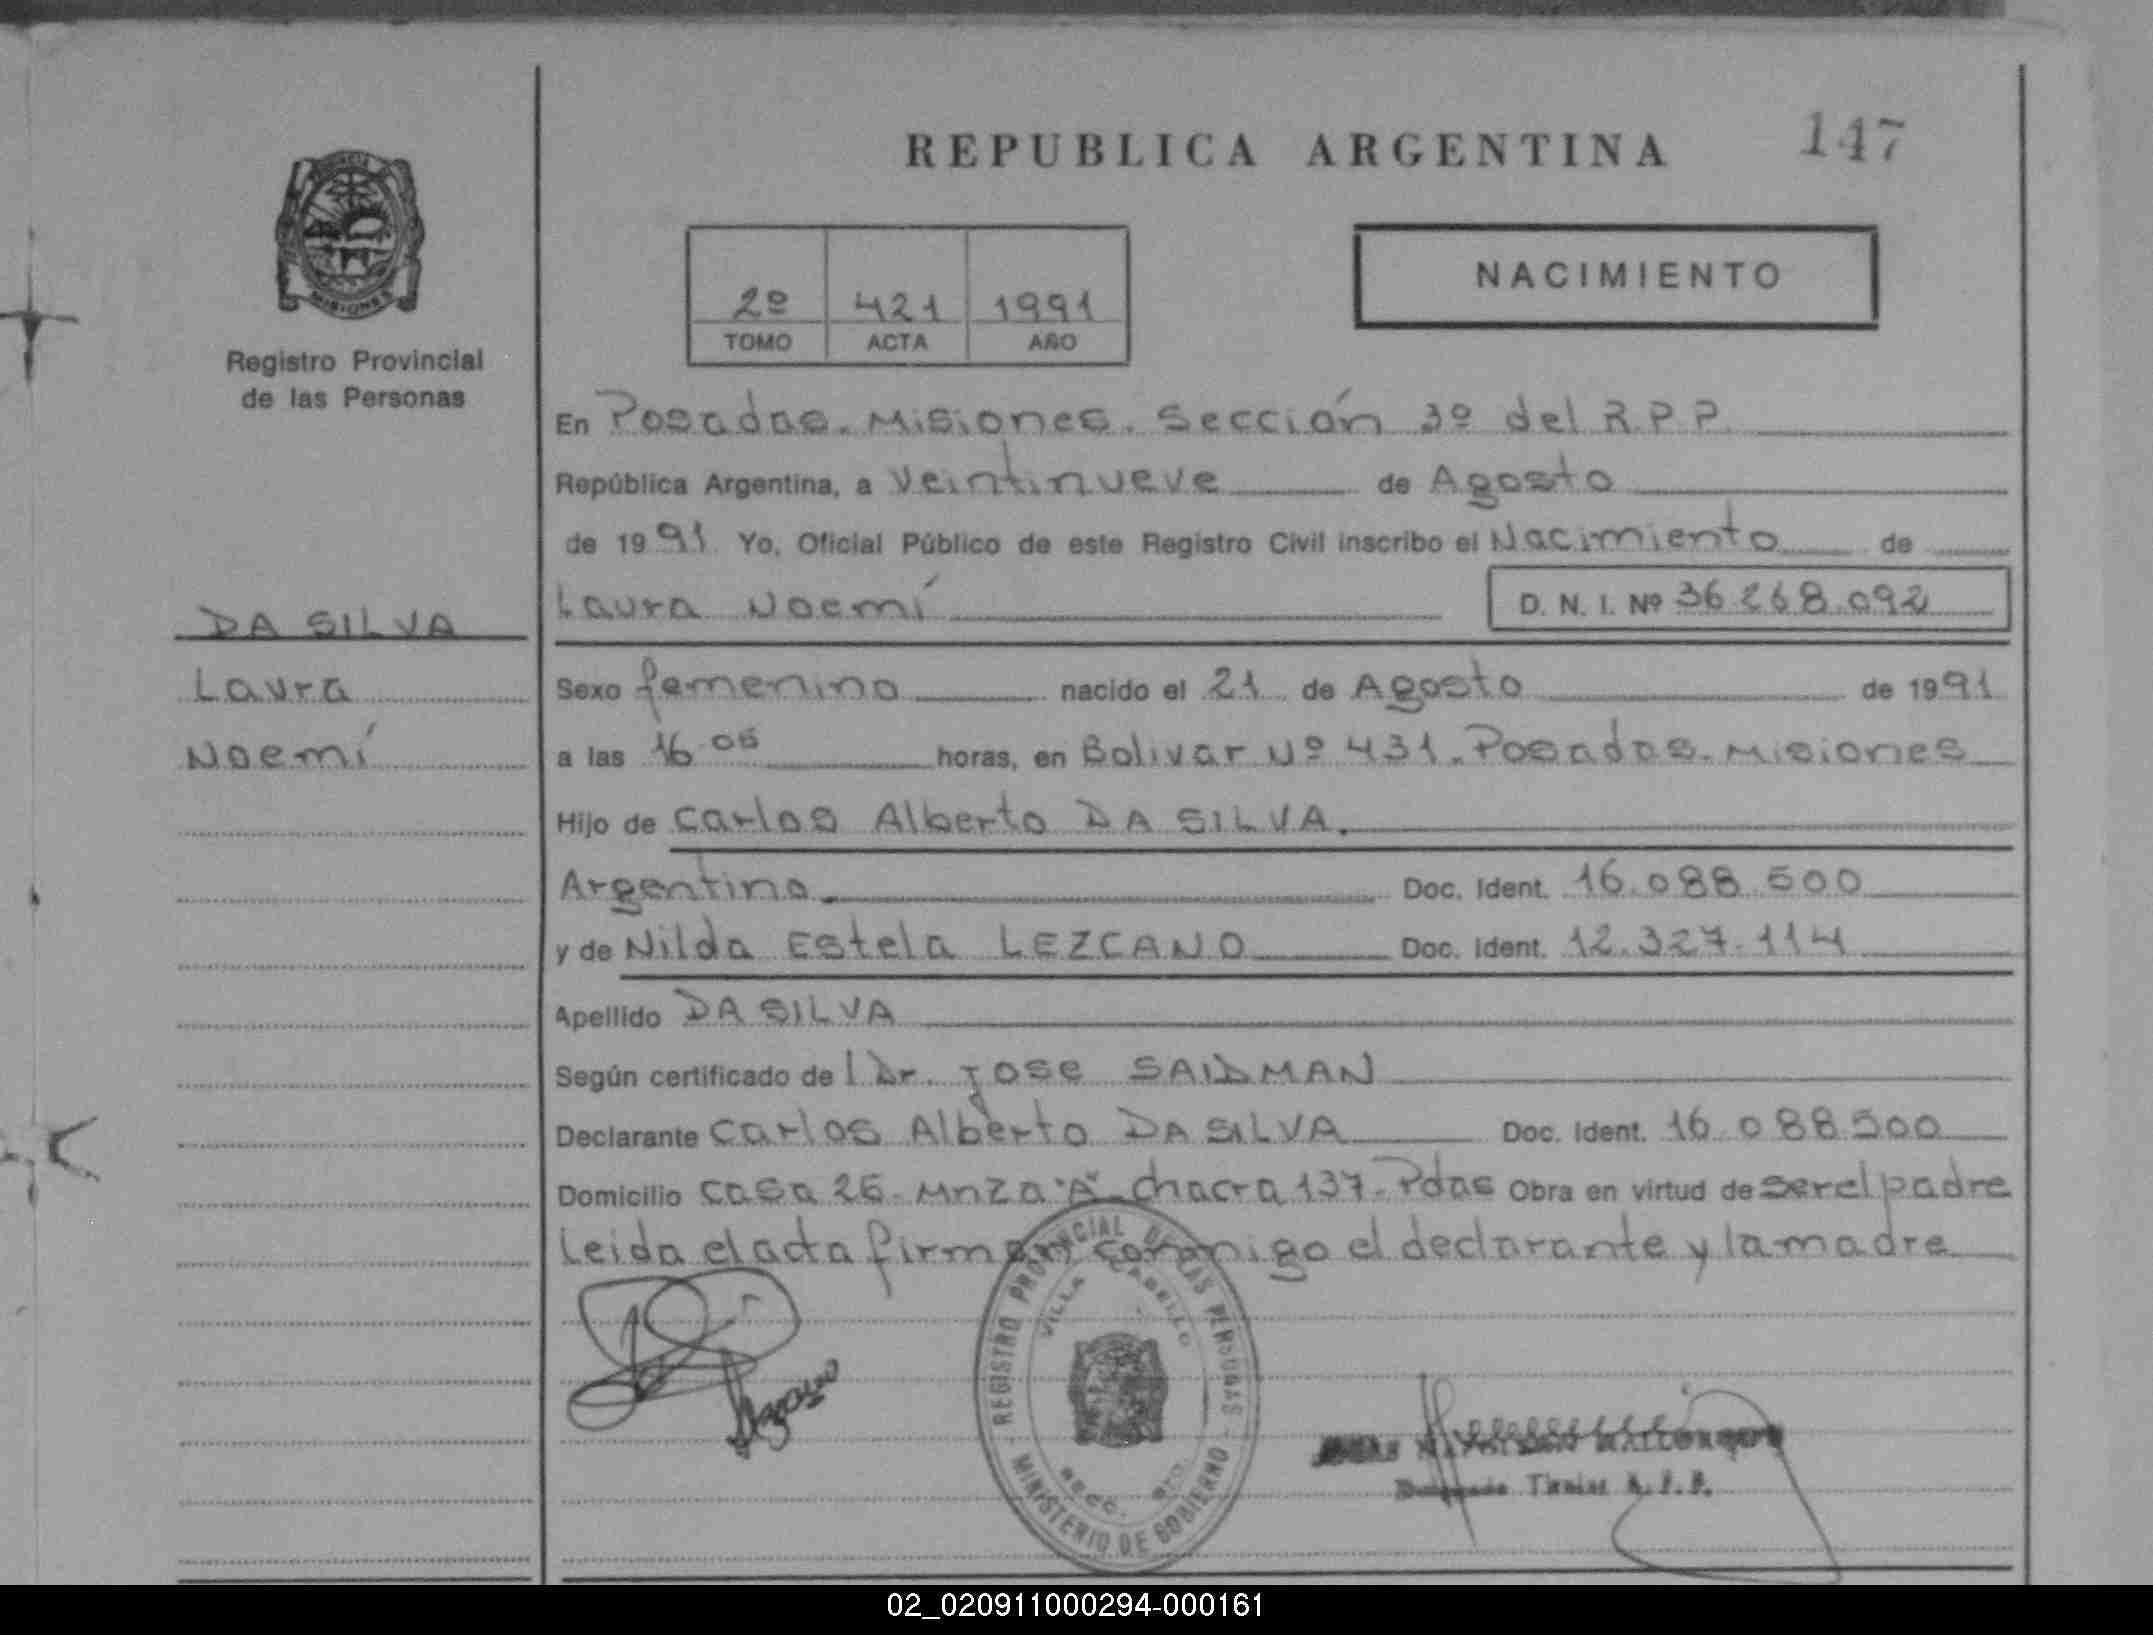 REPUBLICA ARGENTINA
147
MISIONES
Registro Provincial
de las Personas
2º 421 1991
TOMO ACTA AÑO
NACIMIENTO
En Posadas. Misiones. Sección 3º del R.P.P.
República Argentina, a Veintinueve de Agosto
de 1991 Yo, Oficial Público de este Registro Civil inscribo el Nacimiento de
Laura Noemí D. N. I. Nº 36.268.092
DA SILVA
Laura
Noemí
Sexo femenino nacido el 21 de Agosto de 1991
a las 16 05 horas, en Bolivar Nº 431. Posadas. Misiones
Hijo de Carlos Alberto DA SILVA.
Argentino Doc. Ident. 16.088.500
y de Nilda Estela LEZCANO Doc. Ident. 12.327.114
Apellido DA SILVA
Según certificado de l Dr. Jose SAIDMAN
Declarante Carlos Alberto DA SILVA Doc. Ident. 16.088.500
Domicilio Casa 26. Mnza "A" Chacra 137. Pdas Obra en virtud de ser el padre
Leida el acta firman conmigo el declarante y la madre
REGISTRO PROVINCIAL DE LAS PERSONAS
VILLA CABELLO
MINISTERIO DE GOBIERNO
Lezcano
02_020911000294-000161